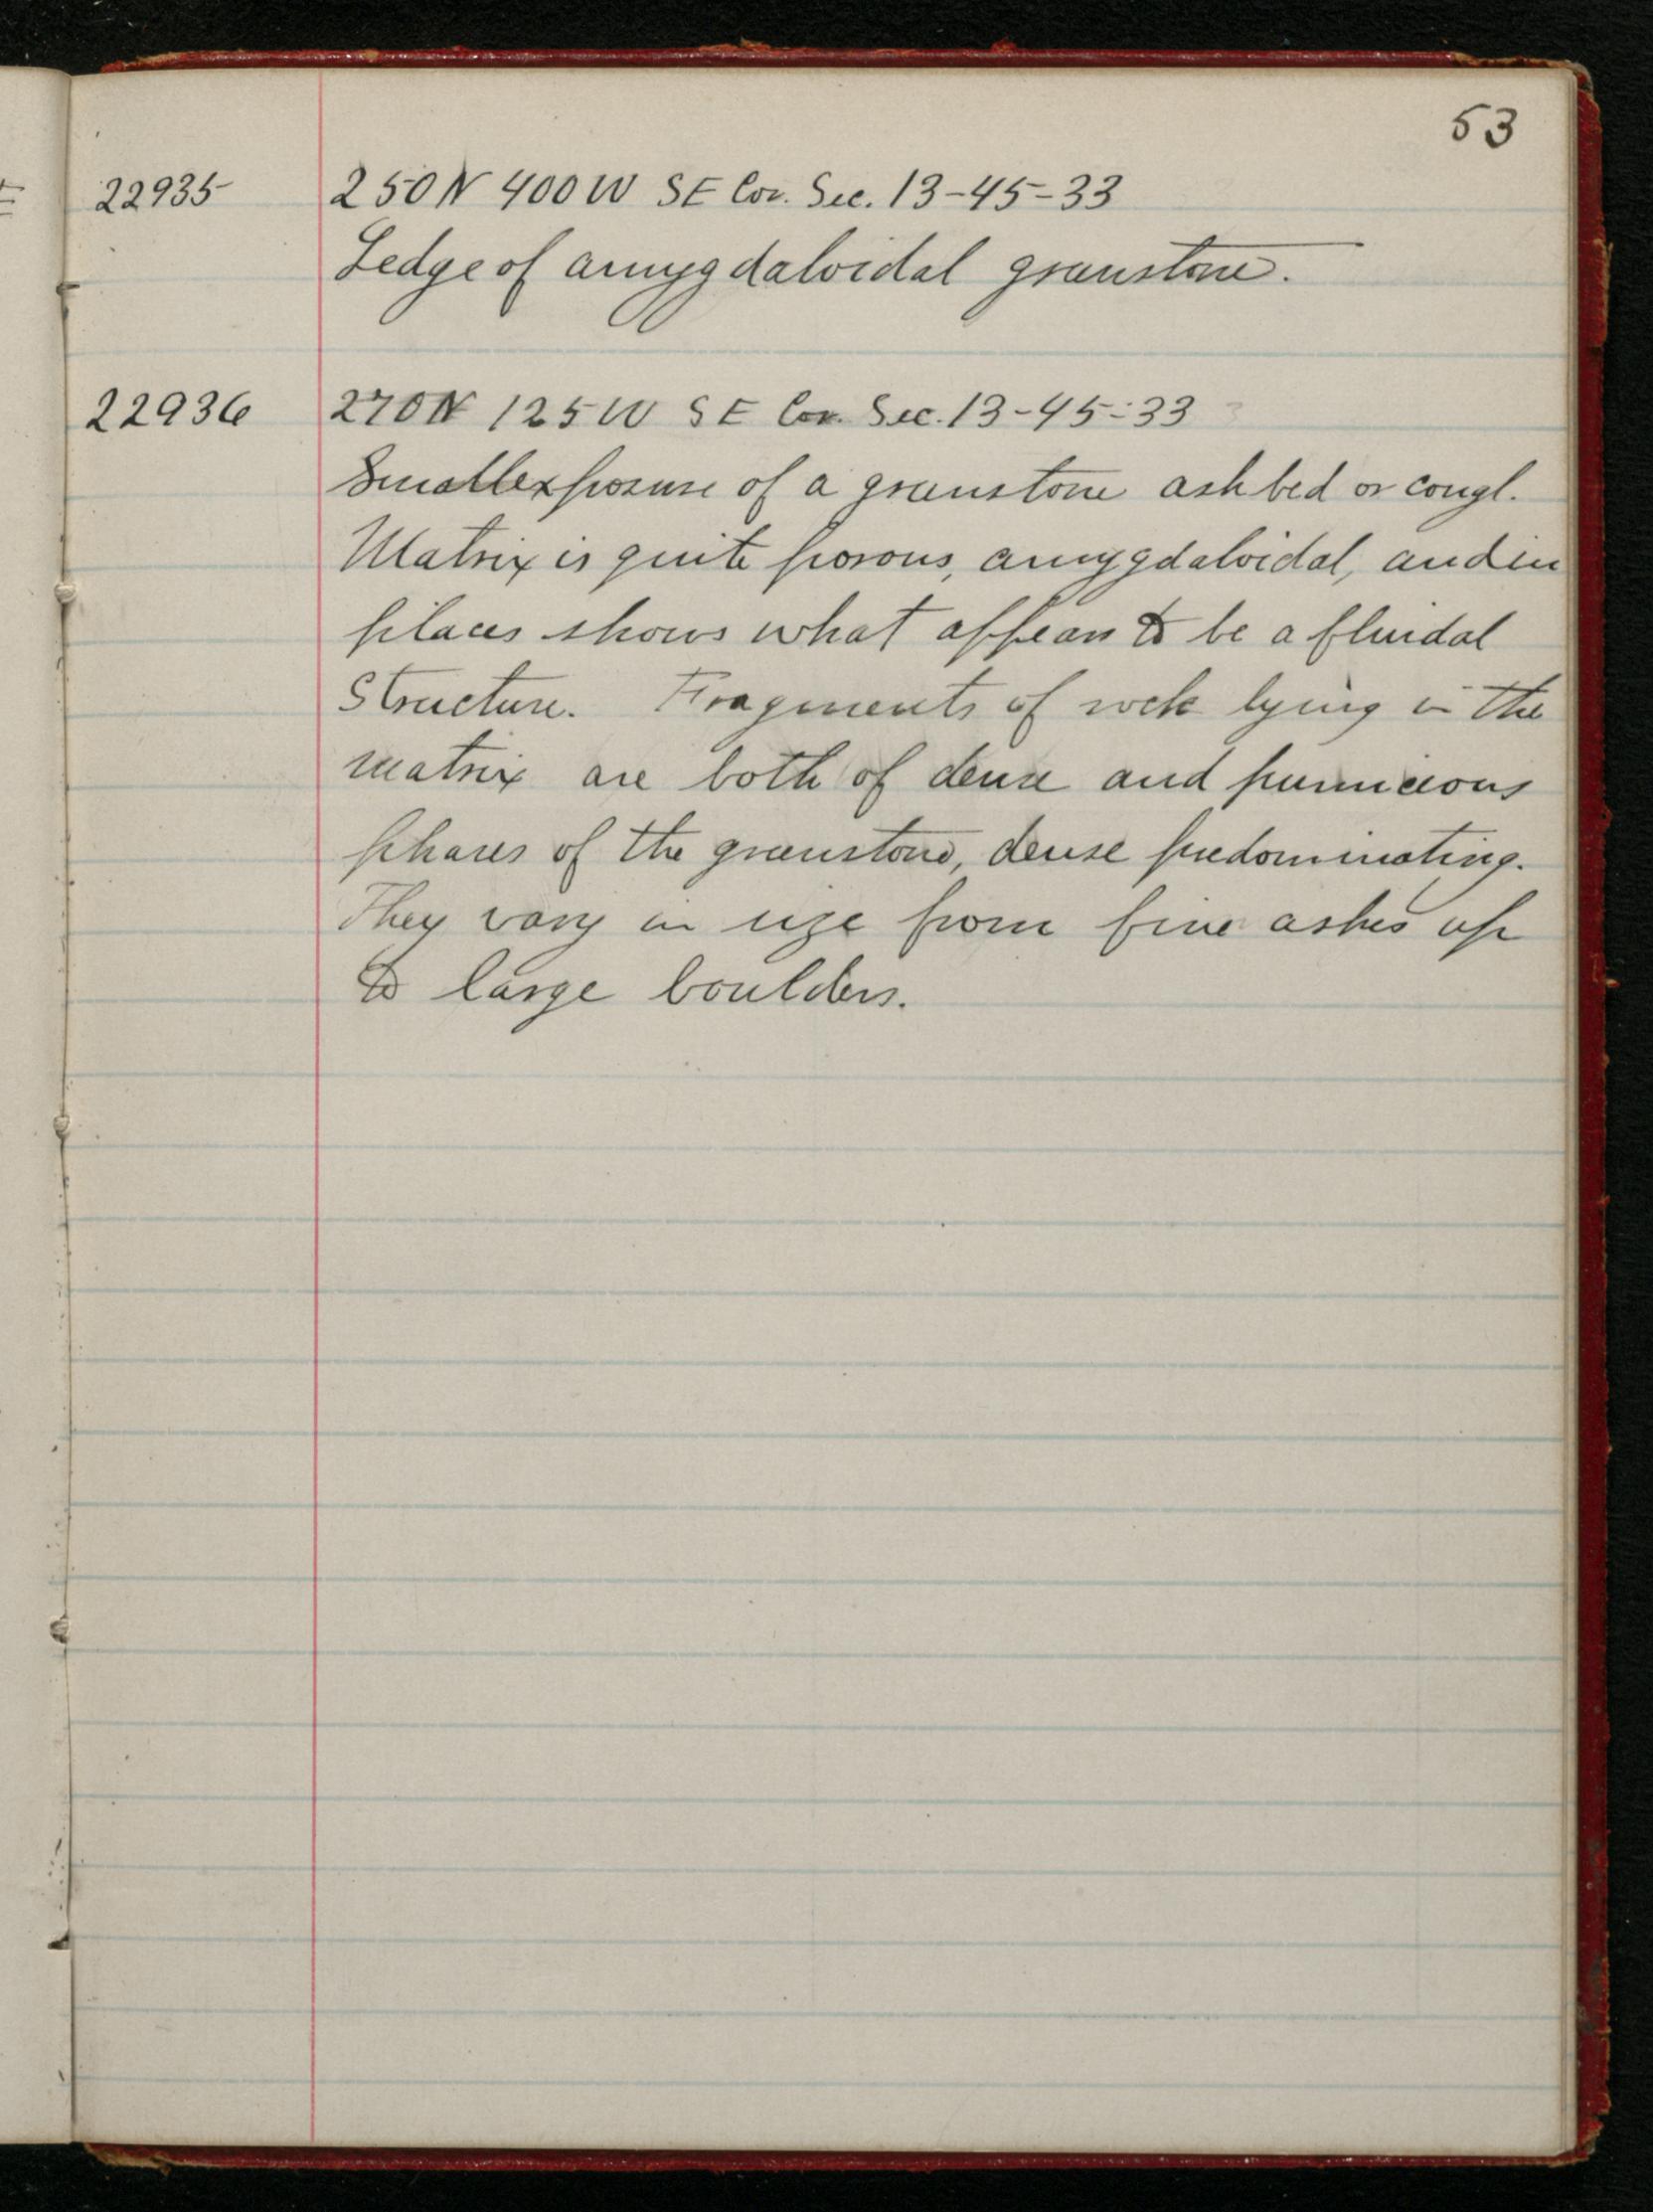 53
22935 250N 400W SE Cor. Sec. 13-45-33
Ledge of amygdaloidal greenstone.
22936 270N 125W SE Cor. Sec. 13-45-33
Small exposure of a greenstone ash bed or congl.
Matrix is quite porous, amygdaloidal, and in
places shows what appears to be a fluidal
structure. Fragments of rock lying in the
matrix are both of dense and pumiceous
phases of the greenstone, dense predominating.
They vary in size from fine ashes up
to large boulders.